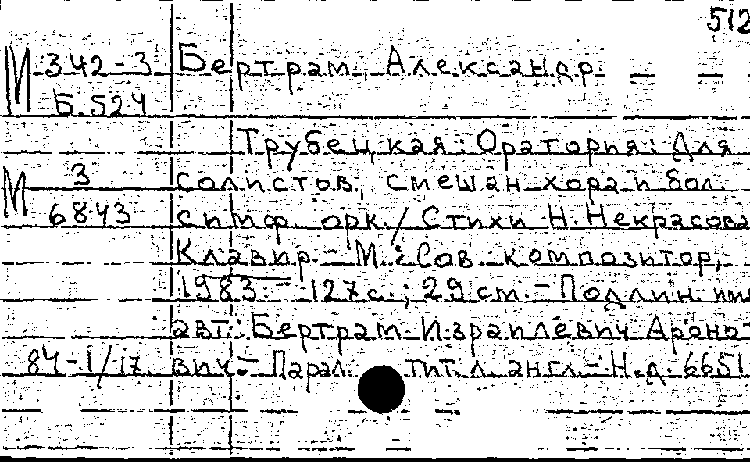 512
М 342-3 Бертрам Александр.
Б.524
Трубецкая: Оратория: Для
М 3 солистов, смешан хора и бол.
6843 симф. орк. / Стихи Н. Некрасова
Клавир. - М.: Сов. композитор,
1983. - 127 с.; 29 см. - Подлин. имя
авт.: Бертрам Израилевич Арано
84-1/17. вич. - Парал. тит. л. англ. - Н.д. 6651